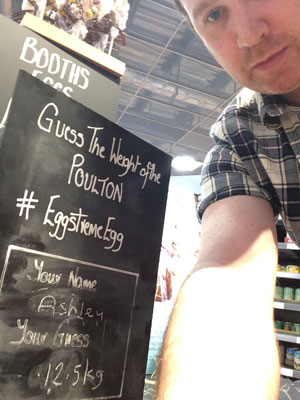 BOOTHS
EGGS
Guess The Weight of the
POULTON
# EggstremeEgg
Your Name
Ashley
Your Guess
12.5kg